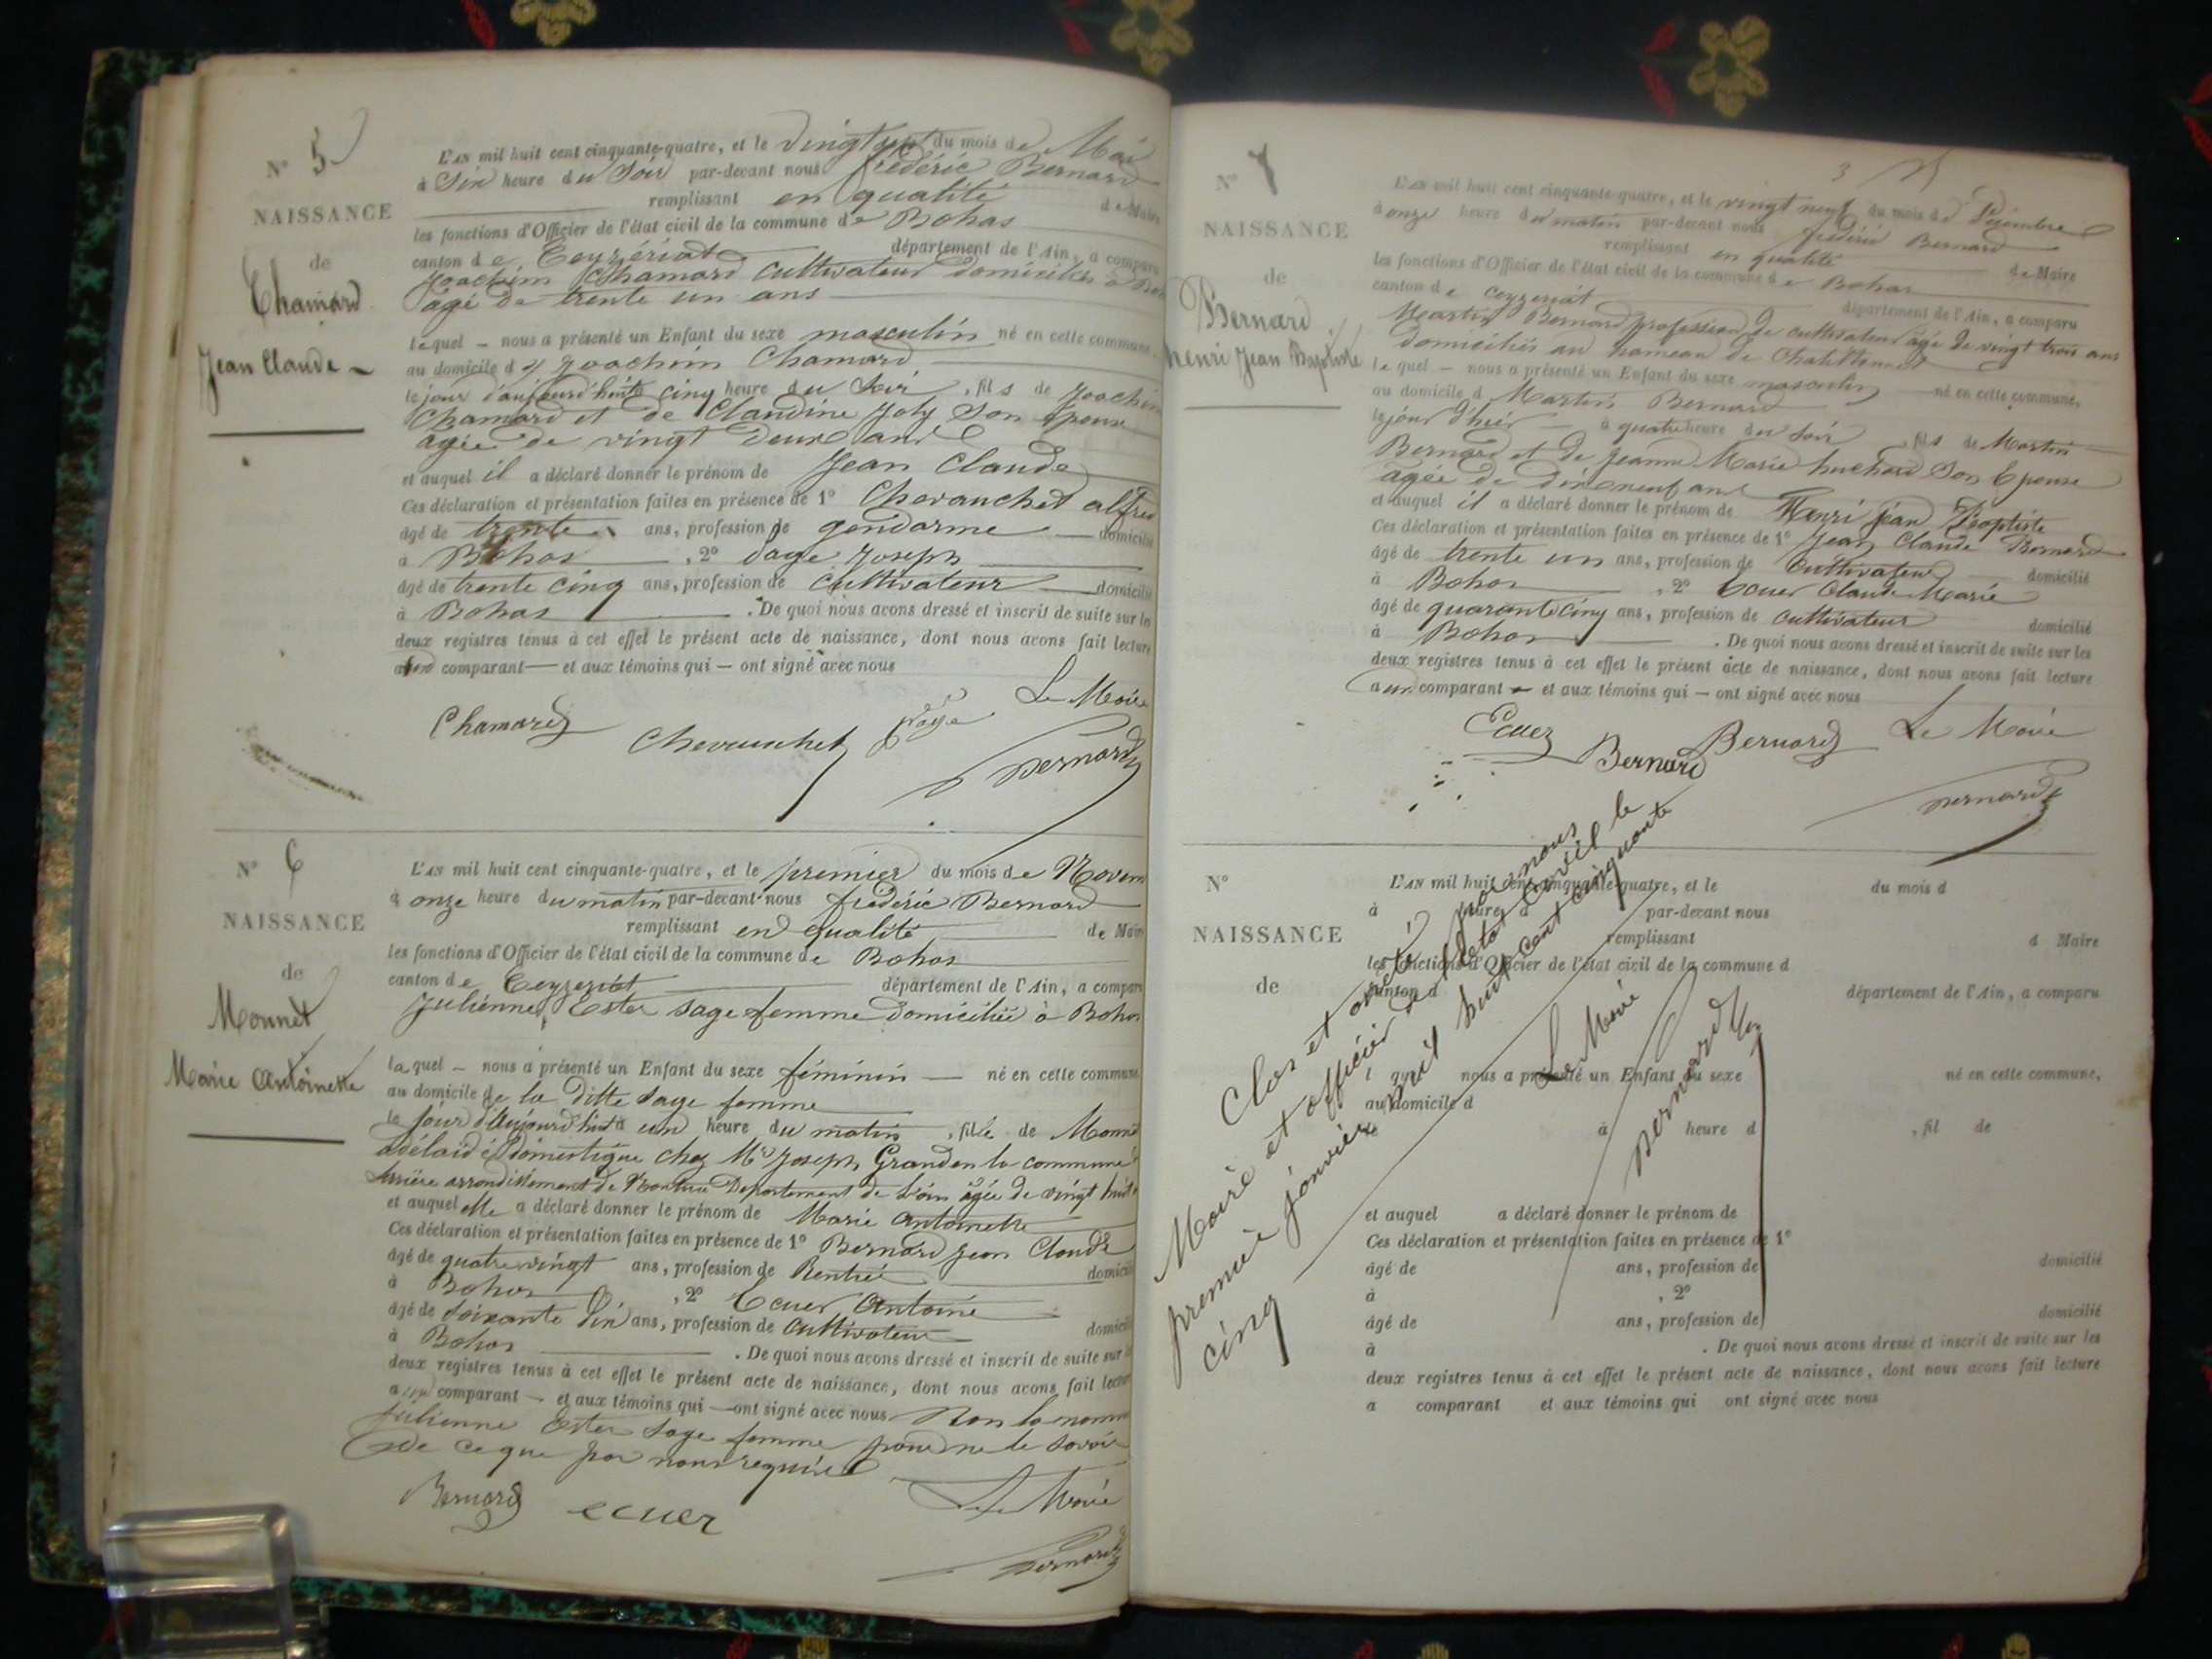 N° 5
NAISSANCE
de
Chamard
Jean Claude
L'AN mil huit cent cinquante-quatre, et le vingt sept du mois de Mai
à Six heure du Soir par-devant nous frédéric Bernard
remplissant en qualité de Maire
les fonctions d'Officier de l'état civil de la commune de Bohas
canton de Ceyzériat département de l'Ain, a comparu
Joachim Chamard cultivateur domicilié à
âgé de trente un ans
lequel nous a présenté un Enfant du sexe masculin né en cette commune
au domicile d Joachim Chamard
le jour d'aujourd'hui à cinq heure du Soir, fils de Joachim
Chamard et de Claudine Joly Son Epouse
agée de vingt deux ans
et auquel il a déclaré donner le prénom de Jean Claude
Ces déclaration et présentation faites en présence de 1° Chevauchet alfred
âgé de trente ans, profession de gendarme domicilié
à Bohas, 2° page Joseph
âgé de trente cinq ans, profession de Cultivateur domicilié
à Bohas. De quoi nous avons dressé et inscrit de suite sur les
deux registres tenus à cet effet le présent acte de naissance, dont nous avons fait lecture
comparant et aux témoins qui ont signé avec nous
Le Maire
Chamard Chevauchet page Bernard
N° 6
NAISSANCE
de
Monnet
Marie Antoinette
L'AN mil huit cent cinquante-quatre, et le premier du mois de Novem
à onze heure du matin par-devant nous frédéric Bernard
remplissant en qualité de Maire
les fonctions d'Officier de l'état civil de la commune de Bohas
canton de Ceyzeriat département de l'Ain, a comparu
Julienne Ester sage femme domiciliée à Bohas
laquel nous a présenté un Enfant du sexe féminin né en cette commune
au domicile de la ditte sage femme
le jour d'aujourd'hui à une heure du matin, fille de Monnet
adélaide domestique chez Mr Joseph Grand en la commune
arrondissement de Nantua Departement de l'ain âgée de vingt huit
et auquel elle a déclaré donner le prénom de Marie Antoinette
Ces déclaration et présentation faites en présence de 1° Bernard Jean Claude
âgé de quatrevingt ans, profession de Rentier domicilié
à Bohas, 2° Ecuer Antoine
âgé de soixante Six ans, profession de Cultivateur domicilié
à Bohas. De quoi nous avons dressé et inscrit de suite sur les
deux registres tenus à cet effet le présent acte de naissance, dont nous avons fait lecture
comparant et aux témoins qui ont signé avec nous Non la nommée
Julienne Ester sage femme pour ne le savoir
de ce que par nous requise
Le Maire
Bernard ecuer Bernard
3
N° 7
NAISSANCE
de
Bernard
henri Jean Baptiste
L'AN mil huit cent cinquante-quatre, et le vingt neuf du mois de Décembre
à onze heure du matin par-devant nous frédéric Bernard
remplissant en qualité de Maire
les fonctions d'Officier de l'état civil de la commune de Bohas
canton de ceyzeriat département de l'Ain, a comparu
Martin Bernard profession de cultivateur âgé de vingt trois ans
domicilié au hameau de
lequel nous a présenté un Enfant du sexe masculin né en cette commune,
au domicile d Martin Bernard
le jour d'hier à quatre heure du soir, fils de Martin
Bernard et de Jeanne Marie huchard Son Epouse
âgée de dixneuf ans
et auquel il a déclaré donner le prénom de Henri Jean Baptiste
Ces déclaration et présentation faites en présence de 1° Jean Claude Bernard
âgé de trente un ans, profession de Cultivateur domicilié
à Bohas, 2° Ecuer Claude Marie
âgé de quarante cinq ans, profession de cultivateur domicilié
à Bohas. De quoi nous avons dressé et inscrit de suite sur les
deux registres tenus à cet effet le présent acte de naissance, dont nous avons fait lecture
au comparant et aux témoins qui ont signé avec nous
Ecuer Bernard Bernard Le Maire
Bernard
N°
NAISSANCE
de
L'AN mil huit cent cinquante-quatre, et le du mois d
à heure d par-devant nous
remplissant d Maire
les fonctions d'Officier de l'état civil de la commune d
canton d département de l'Ain, a comparu
l quel nous a présenté un Enfant du sexe né en cette commune,
au domicile d
le à heure d, fil de
et auquel a déclaré donner le prénom de
Ces déclaration et présentation faites en présence de 1°
âgé de ans, profession de domicilié
à, 2°
âgé de ans, profession de domicilié
à. De quoi nous avons dressé et inscrit de suite sur les
deux registres tenus à cet effet le présent acte de naissance, dont nous avons fait lecture
a comparant et aux témoins qui ont signé avec nous
Clos et arreté par nous
Maire et officier de l'état Civil le
premier janvier mil huit cent cinquante
cinq
Le Maire
Bernard